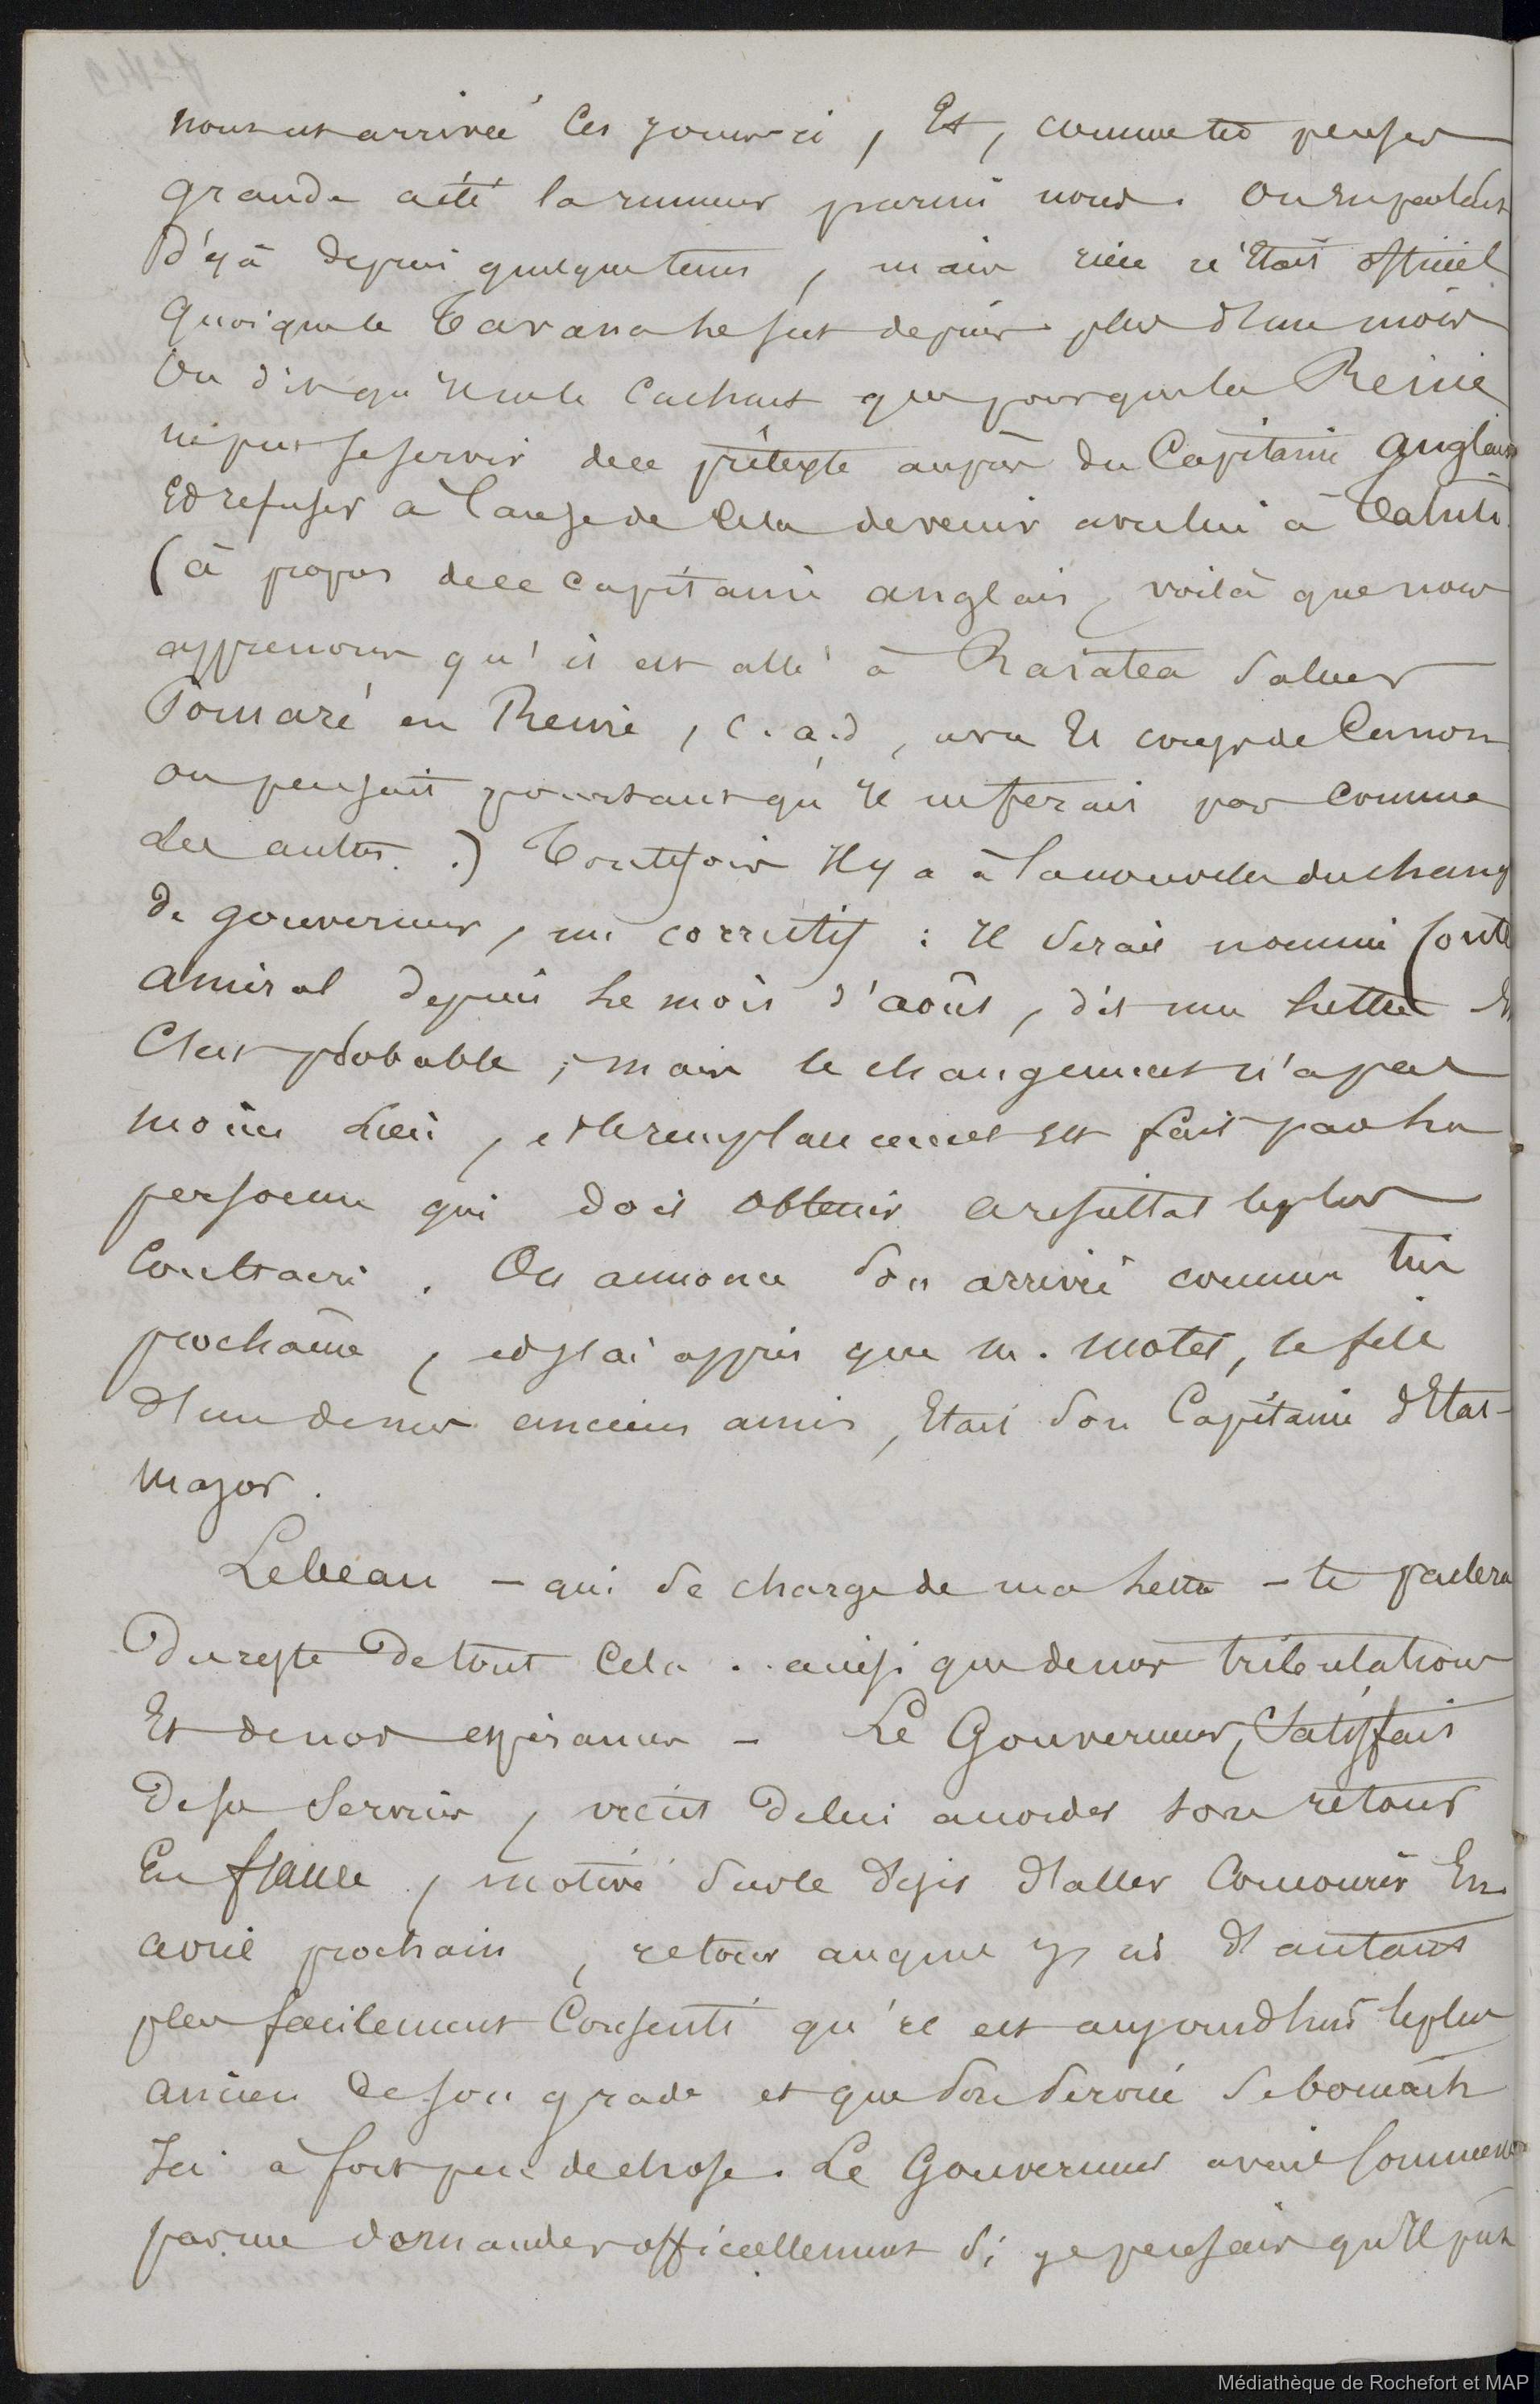 nous est arrivée ces jours-ci, Et, comme tu penses
grande a été la rumeur parmi nous. On en parlait
déjà depuis quelque tems, mais rien n'était officiel
quoique le Tavana le sut depuis plus d'un mois
On dit qu'il ne le cachait que pour que la Reine
ne put se servir de ce prétexte auprès du Capitaine anglais
Et refuser à cause de cela de venir avec lui à Tahiti.
(à propos de ce capitaine anglais, voilà que nous
apprenons qu'il est allé à Raïatea saluer
Pomaré en Reine, c.a.d, avec 21 coups de Canon
on pensait pourtant qu'il ne ferait pas comme
les autres.) Toutefois Il y a à la nouvelle du chang
de gouverneur, un correctif : il serait nommé Contre
amiral depuis le mois d'août, dit une lettre Et
C'est probable ; mais le changement n'a pas
moins lieu, et le remplacement est fait par la
personne qui doit obtenir ce résultat le plus
Contraire. On annonce son arrivée comme très
prochaine, et j'ai appris que M. Motet, le fils
d'un de nos anciens amis, Etait son Capitaine d'Etat-
major.
Lebeau – qui se charge de ma lettre – te parlera
Du reste De tout cela.. ainsi que de nos tribulations
Et de nos espérances – Le Gouverneur, Satisfait
De ses Services, vient De lui accorder son retour
En france, motivé sur le désir d'aller Concourir En
avril prochain, retour auquel j'ai d'autant
plus facilement Consenti qu'il est aujourd'hui le plus
ancien de son grade et que son service se bornait
Ici à fort peu de chose. Le Gouverneur avait commencé
par me demander officiellement si je pensais qu'Il put
Médiathèque de Rochefort et MAP